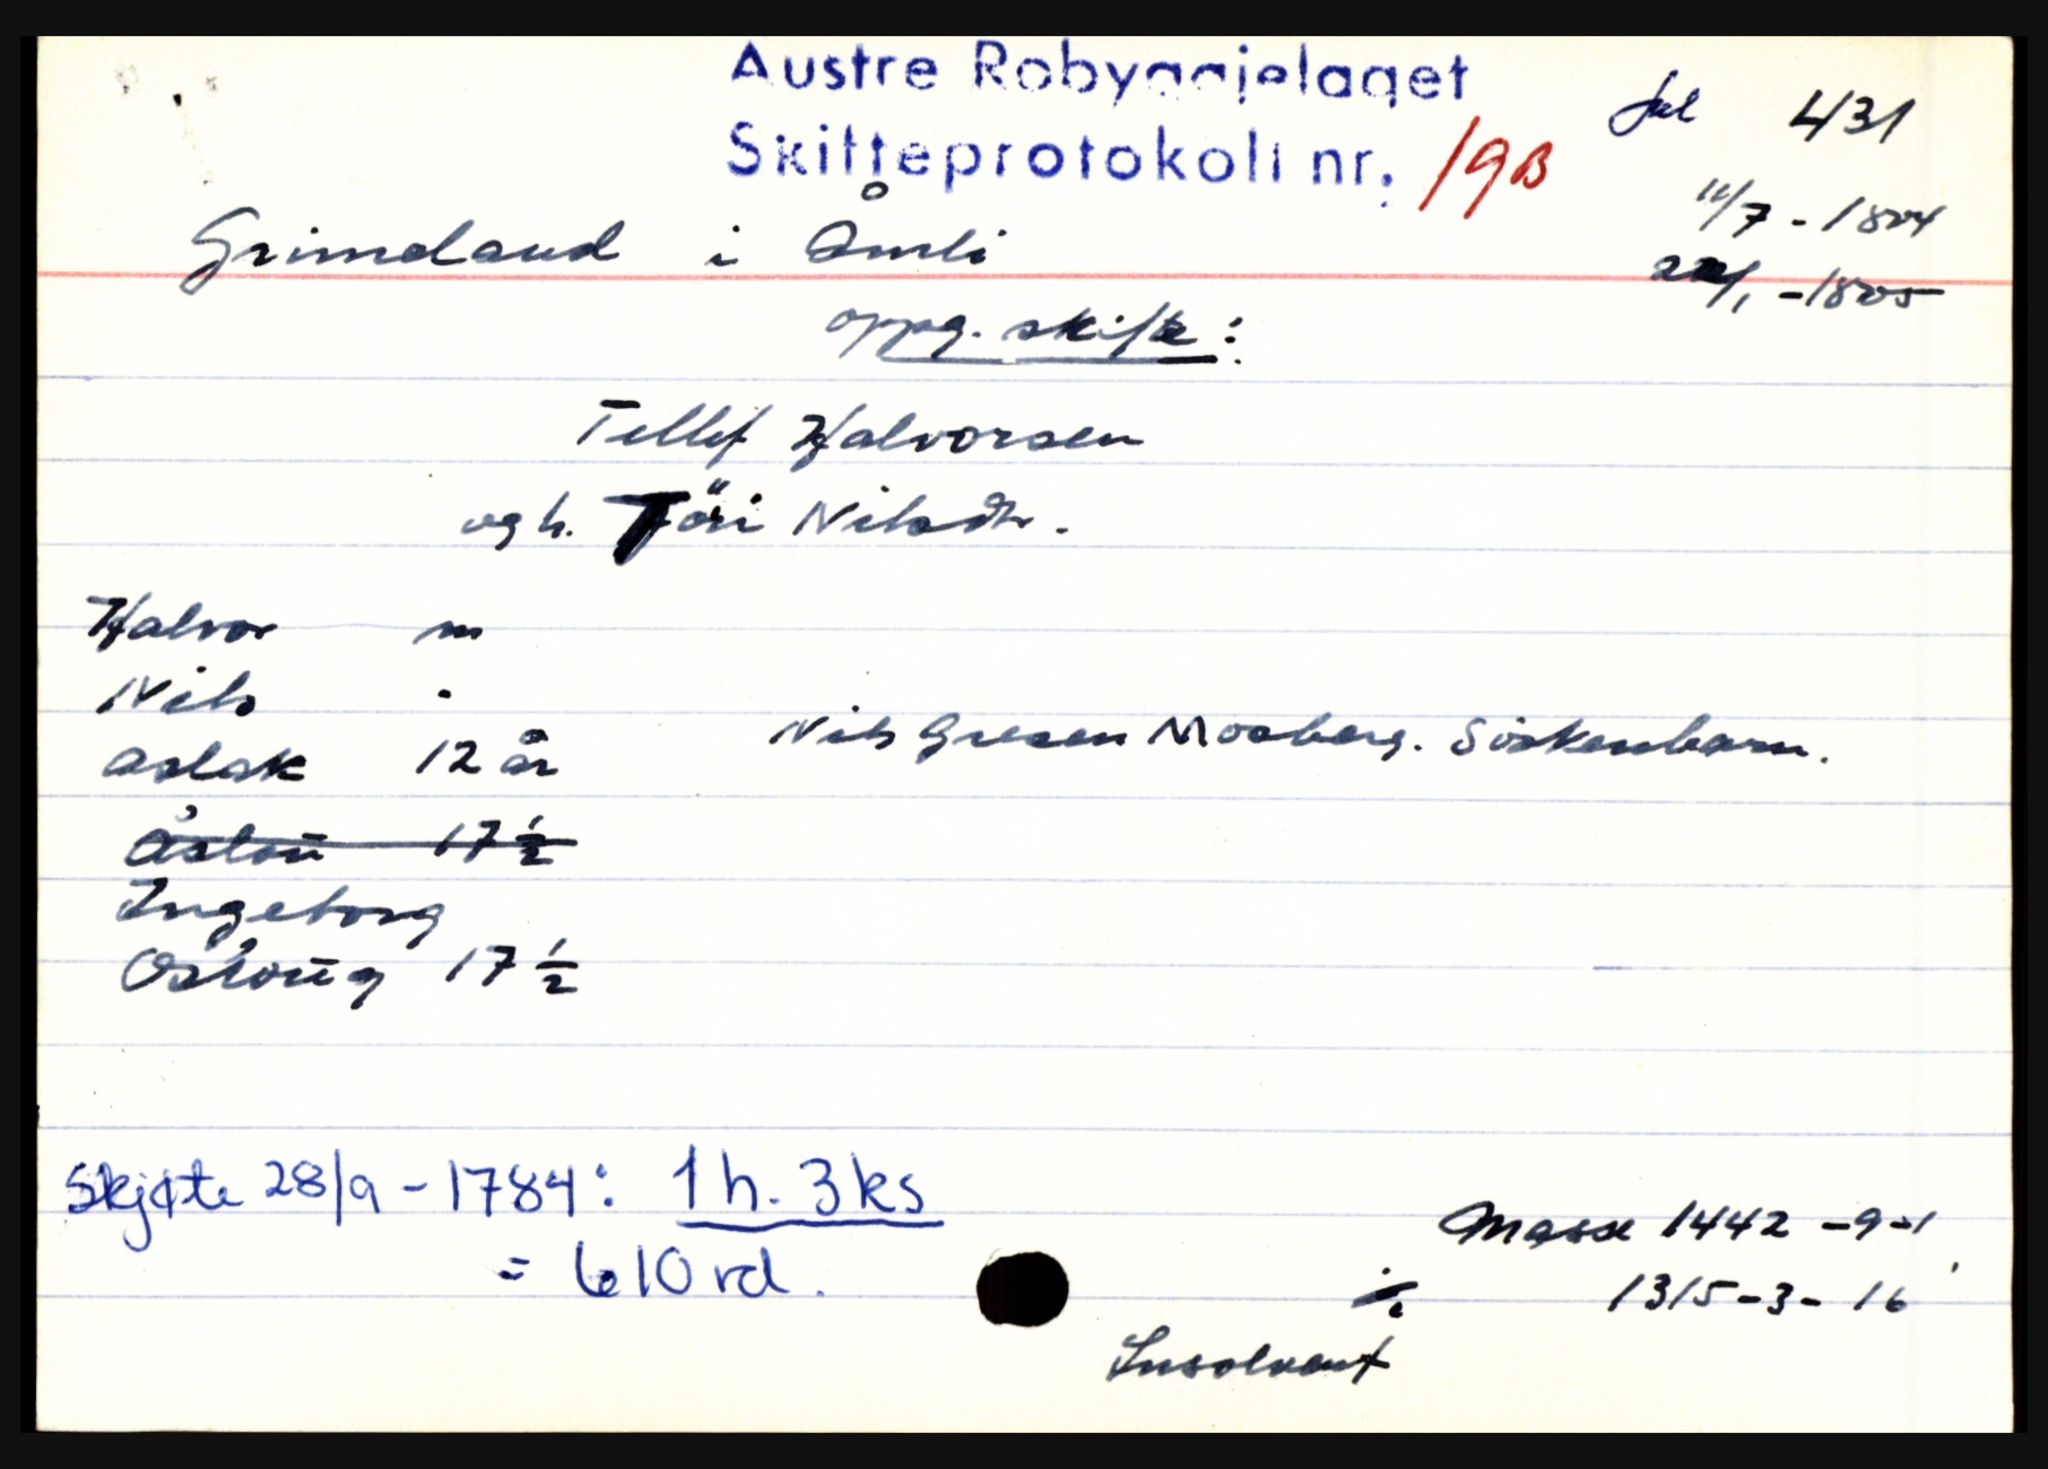 Austre Robyggjelaget
Skifteprotokoll nr. 19B
fol 431
11/7 - 1804
22/1 - 1805
Grimeland i Åmli
oppg. skifte:
Tellef Halvorsen
og h. Töri Nilsdtr.
Halvor m
Nils "
Aslak 12 år
Nils Gresen Mosberg. Söskenbarn.
Åslou 17 1/2
Ingeborg
Osloug 17 1/2
Skjøte 28/9 - 1784: 1 h. 3 ks
= 610 rd.
Masse 1442 - 9 - 1
÷ 1315 - 3 - 16
Insolvent